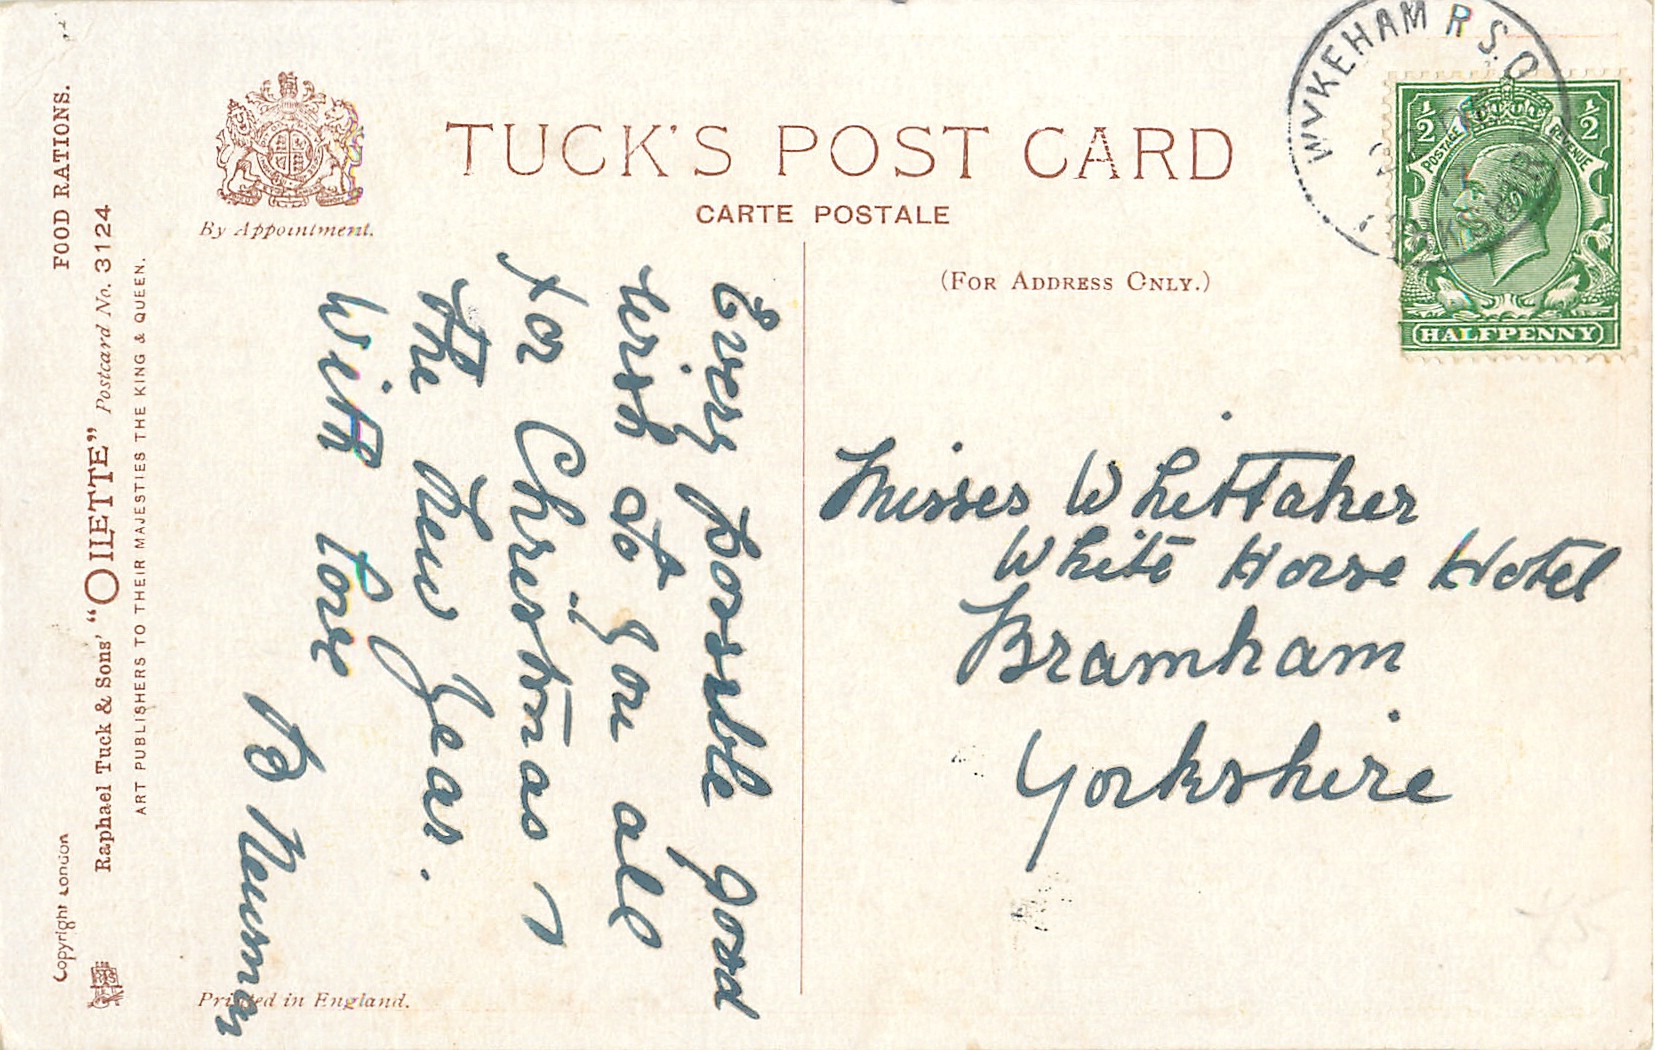 FOOD RATIONS.
Raphael Tuck & Sons' "OILETTE" Postcard No. 3124
ART PUBLISHERS TO THEIR MAJESTIES THE KING & QUEEN.
Copyright London
By Appointment.
TUCK'S POST CARD
CARTE POSTALE
(FOR ADDRESS ONLY.)
WYKEHAM R.S.O.
YORKSHIRE
½ ½
POSTAGE REVENUE
HALFPENNY
Every possible good
wish to you all
for Christmas &
the New Year.
With love
B Newman
Misses Whittaker
White Horse Hotel
Bramham
Yorkshire
Printed in England.